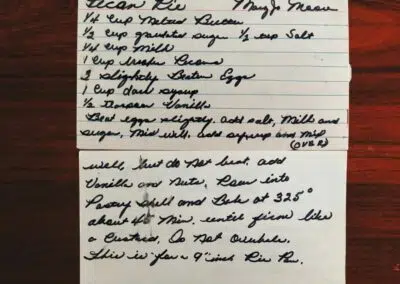 Pecan Pie Mary Jo Moore
1/4 Cup Melted Butter
1/2 Cup granulated sugar 1/2 tsp Salt
1/4 Cup Milk
1 Cup broken Pecans
3 slightly Beaten Eggs
1 Cup dark syrup
1/2 Teaspoon Vanilla
Beat eggs slightly, add salt, Milk and
sugar, Mix well, add syrup and Mix
(OVER)
well, but do Not beat, add
Vanilla and Nuts, Pour into
Pastry Shell and Bake at 325°
about 45 Min. until firm like
a Custard, Do Not Overbake.
This is for a 9" inch Pie Pan.